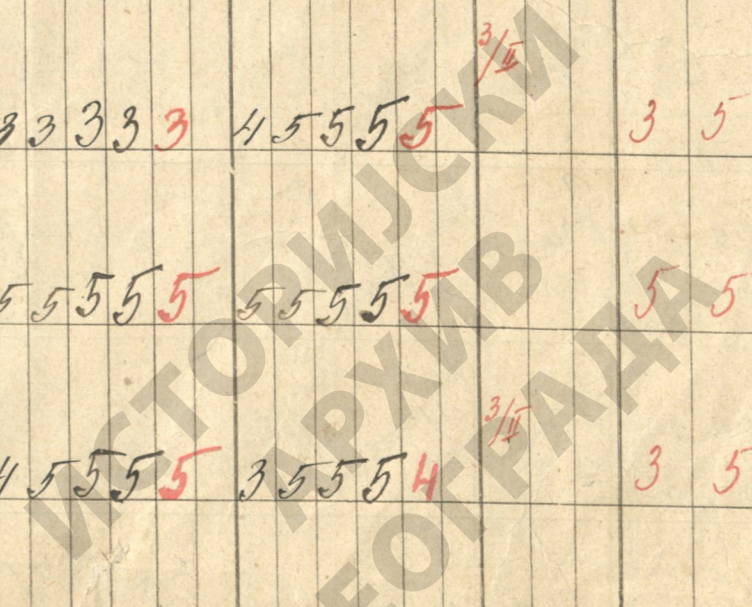 3/II
3 3 3 3 3 4 5 5 5 5 3 5
5 5 5 5 5 5 5 5 5 5 5 5
3/II
4 5 5 5 5 3 5 5 5 4 3 5
ИСТОРИЈСКИ
АРХИВ
ЕОГРАДА